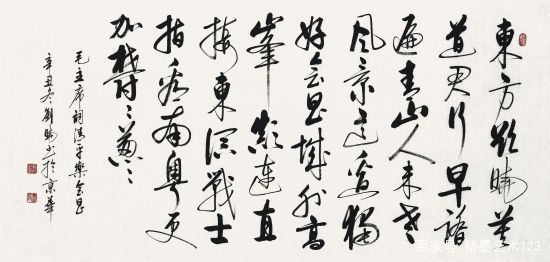 東方欲曉莫
道君行早踏
遍青山人未老
風景這邊獨
好会昌城外高
峯顛連直
接東溟戰士
指看南粵更
加鬱々葱々
毛主席詞清平樂会昌
辛丑冬劉書於京華
百家号/墨艺术123